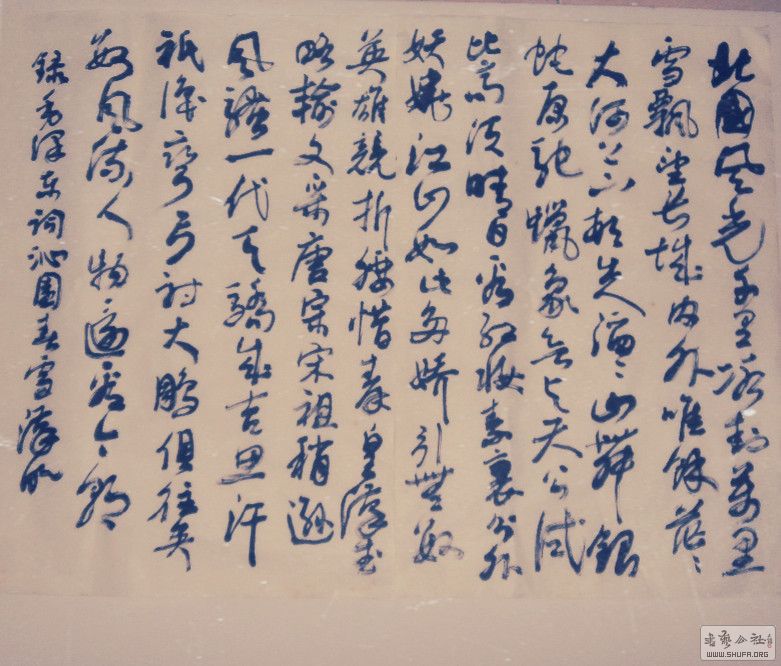 北國风光千里冰封萬里
雪飄望长城内外唯餘莽〻
大河上下頓失滔〻山舞銀
蛇原馳蠟象欲与天公试
比高须晴日看红妝素裹分外
妖嬈江山如此多娇引無数
英雄競折腰惜秦皇漢武
略输文采唐宗宋祖稍遜
风骚一代天驕成吉思汗
祇識彎弓射大鵰俱往矣
数风流人物還看今朝
録毛泽东词沁園春雪
書藝公社
WWW.SHUFA.ORG